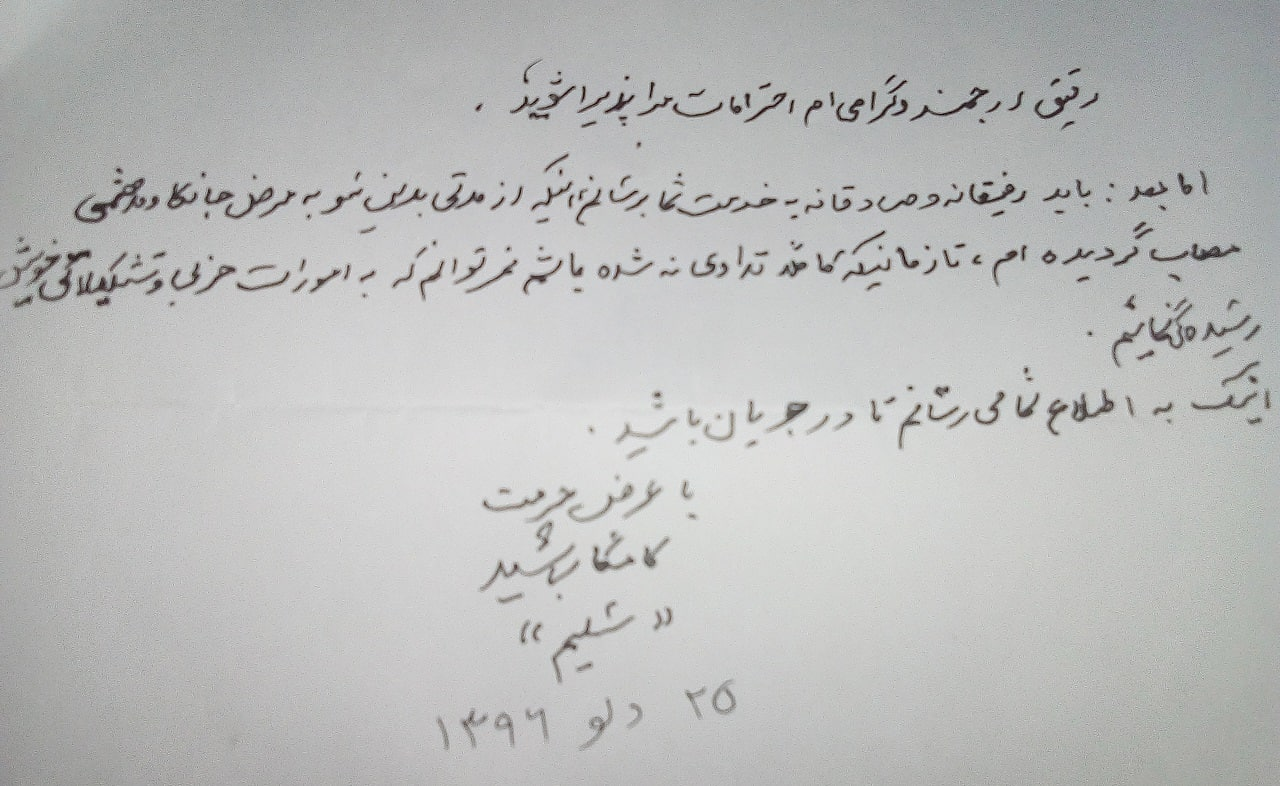 رفیق ارجمند و گرامی ام احترامات مرا پذیرا شوید.
اما بعد: باید رفیقانه و صادقانه به خدمت شما برسانم، اینکه از مدتی بدین سو به مرض جانکاه و مدهشی
مصاب گردیده ام، تا زمانیکه کاملاً تداوی نه شده باشم نمی توانم که به امورات حزبی و تشکیلاتی خویش
رسیده گی نمایم.
اینک به اطلاع شما می رسانم تا در جریان باشید.
با عرض حرمت
کامگار باشید
« سلیم »
۲۵ دلو ۱۳۹۶